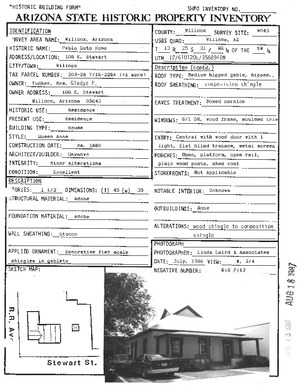 "HISTORIC BUILDING FORM"
SHPO INVENTORY NO.
ARIZONA STATE HISTORIC PROPERTY INVENTORY
IDENTIFICATION
SURVEY AREA NAME: Willcox, Arizona
HISTORIC NAME: Pablo Soto Home
ADDRESS/LOCATION: 108 E. Stewart
CITY/TOWN: Willcox
TAX PARCEL NUMBER:
OWNER: Tucker, Mrs. Gladys F.
OWNER ADDRESS: 108 E. Stewart
Willcox, Arizona 85643
HISTORIC USE: Residence
PRESENT USE: Residence
BUILDING TYPE: House
STYLE: Queen Anne
CONSTRUCTION DATE: ca. 1880
ARCHITECT/BUILDER: Unknown
INTEGRITY: Minor alterations
CONDITION: Excellent
DESCRIPTION
STORIES: 1 1/2 DIMENSIONS: (l) 45 (w) 35
STRUCTURAL MATERIAL: Adobe
FOUNDATION MATERIAL: Adobe
WALL SHEATHING: Stucco
APPLIED ORNAMENT: Decorative fish scale
shingles in gablets.
SKETCH MAP:
R.R. AV.
Stewart St.
COUNTY: Willcox SURVEY SITE:
USGS QUAD: Willcox, AZ
Description (contd.)
ROOF TYPE: Medium hipped gable, hipped.
ROOF SHEATHING: Composition shingle
EAVES TREATMENT: Boxed cornice
WINDOWS: 6/1 DH, wood frame,
ENTRY: Central with wood door with 1
light, flat blind transom, metal screen
PORCHES: Open, platform, open rail,
plain wood posts, shed roof
STOREFRONTS: Not applicable
NOTABLE INTERIOR: Unknown
OUTBUILDINGS: None
ALTERATIONS: Wood shingle to composition
shingle
PHOTOGRAPH
PHOTOGRAPHER: Linda Laird & Associates
DATE: July, 1986 VIEW: W, 3/4
NEGATIVE NUMBER:
AUG 18 1987